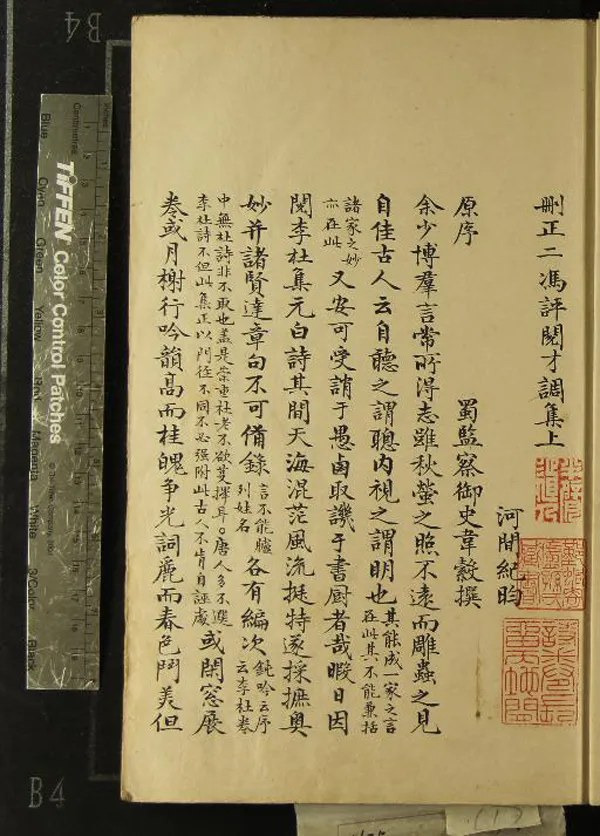 刪正二馮評閱才調集上
河間紀昀
原序
蜀監察御史韋縠撰
余少博羣言常所得志雖秋螢之照不遠而雕蟲之見
自佳古人云自聽之謂聰內視之謂明也其能成一家之言在此其不能兼括
諸家之妙亦在此又安可受誚于愚鹵取譏于書厨者哉暇日因
閱李杜集元白詩其間天海混茫風流挺特遂採摭奧
妙并諸賢達章句不可備錄言不能臚列姓名各有編次鈍吟云序云李杜卷
中無杜詩非不取也蓋是崇重杜老不欲芟擇耳。唐人多不選李杜詩不但此集正以門徑不同不必强附此古人不肯自誣處或閒窓展
卷或月榭行吟韻高而桂魄争光詞麗而春色鬥美但
B4
B4
TIFFEN Color Control Patches
© The Tiffen Company
Centimetres
Inches
Blue
Cyan
Green
Yellow
Red
Magenta
White
3/Color
Black